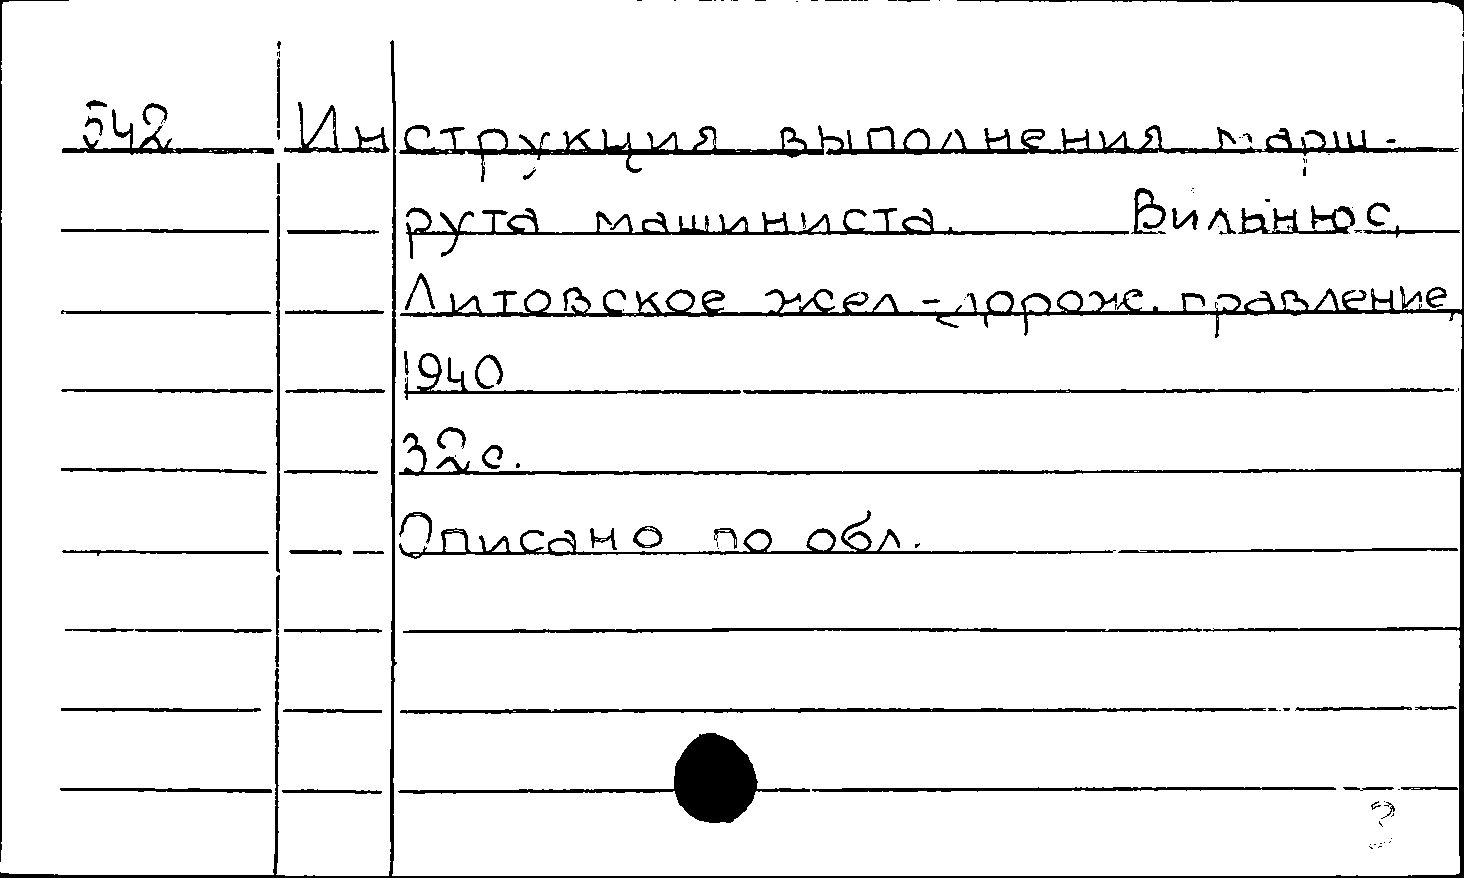 542 Инструкция выполнения марш-
рута машиниста. Вильнюс,
Литовское жел.-дорож. правление,
1940
32с.
Описано по обл.
3